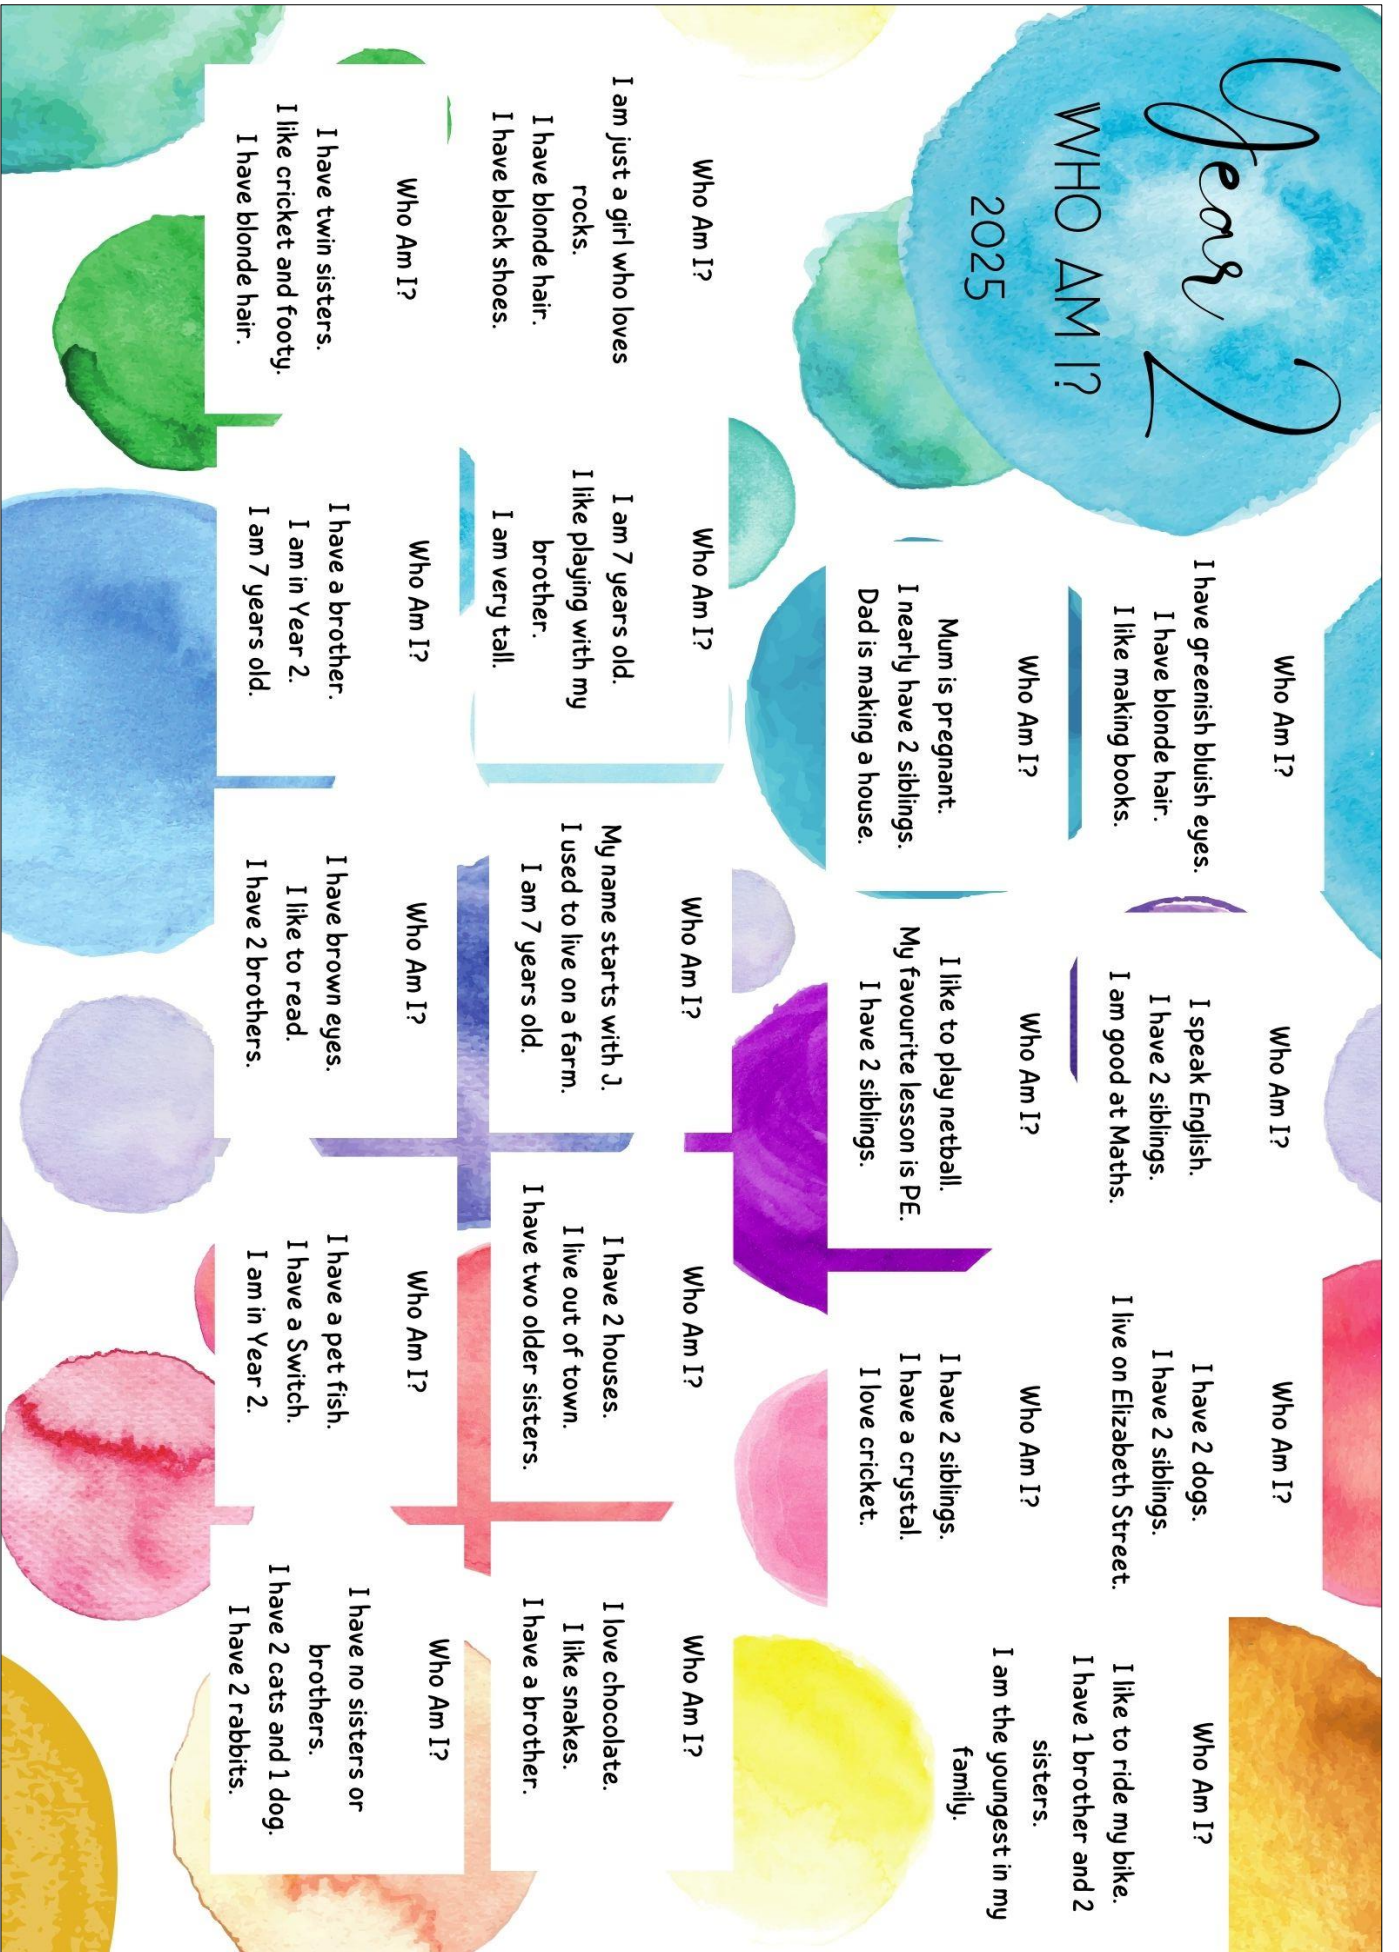 Year 2
WHO AM I?
2025
Who Am I?
I have greenish bluish eyes.
I have blonde hair.
I like making books.
Who Am I?
I speak English.
I have 2 siblings.
I am good at Maths.
Who Am I?
I have 2 dogs.
I have 2 siblings.
I live on Elizabeth Street.
Who Am I?
I like to ride my bike.
I have 1 brother and 2
sisters.
I am the youngest in my
family.
Who Am I?
Mum is pregnant.
I nearly have 2 siblings.
Dad is making a house.
Who Am I?
I like to play netball.
My favourite lesson is PE.
I have 2 siblings.
Who Am I?
I have 2 siblings.
I have a crystal.
I love cricket.
Who Am I?
I am just a girl who loves
rocks.
I have blonde hair.
I have black shoes.
Who Am I?
I am 7 years old.
I like playing with my
brother.
I am very tall.
Who Am I?
My name starts with J.
I used to live on a farm.
I am 7 years old.
Who Am I?
I have 2 houses.
I live out of town.
I have two older sisters.
Who Am I?
I love chocolate.
I like snakes.
I have a brother.
Who Am I?
I have twin sisters.
I like cricket and footy.
I have blonde hair.
Who Am I?
I have a brother.
I am in Year 2.
I am 7 years old.
Who Am I?
I have brown eyes.
I like to read.
I have 2 brothers.
Who Am I?
I have a pet fish.
I have a Switch.
I am in Year 2.
Who Am I?
I have no sisters or
brothers.
I have 2 cats and 1 dog.
I have 2 rabbits.